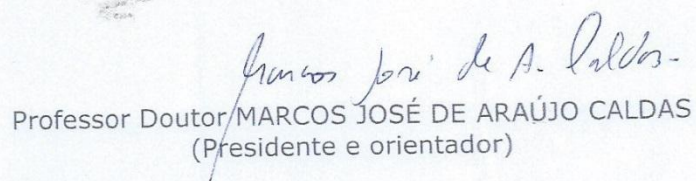 Marcos José de A. Caldas.
Professor Doutor MARCOS JOSÉ DE ARAÚJO CALDAS
(Presidente e orientador)